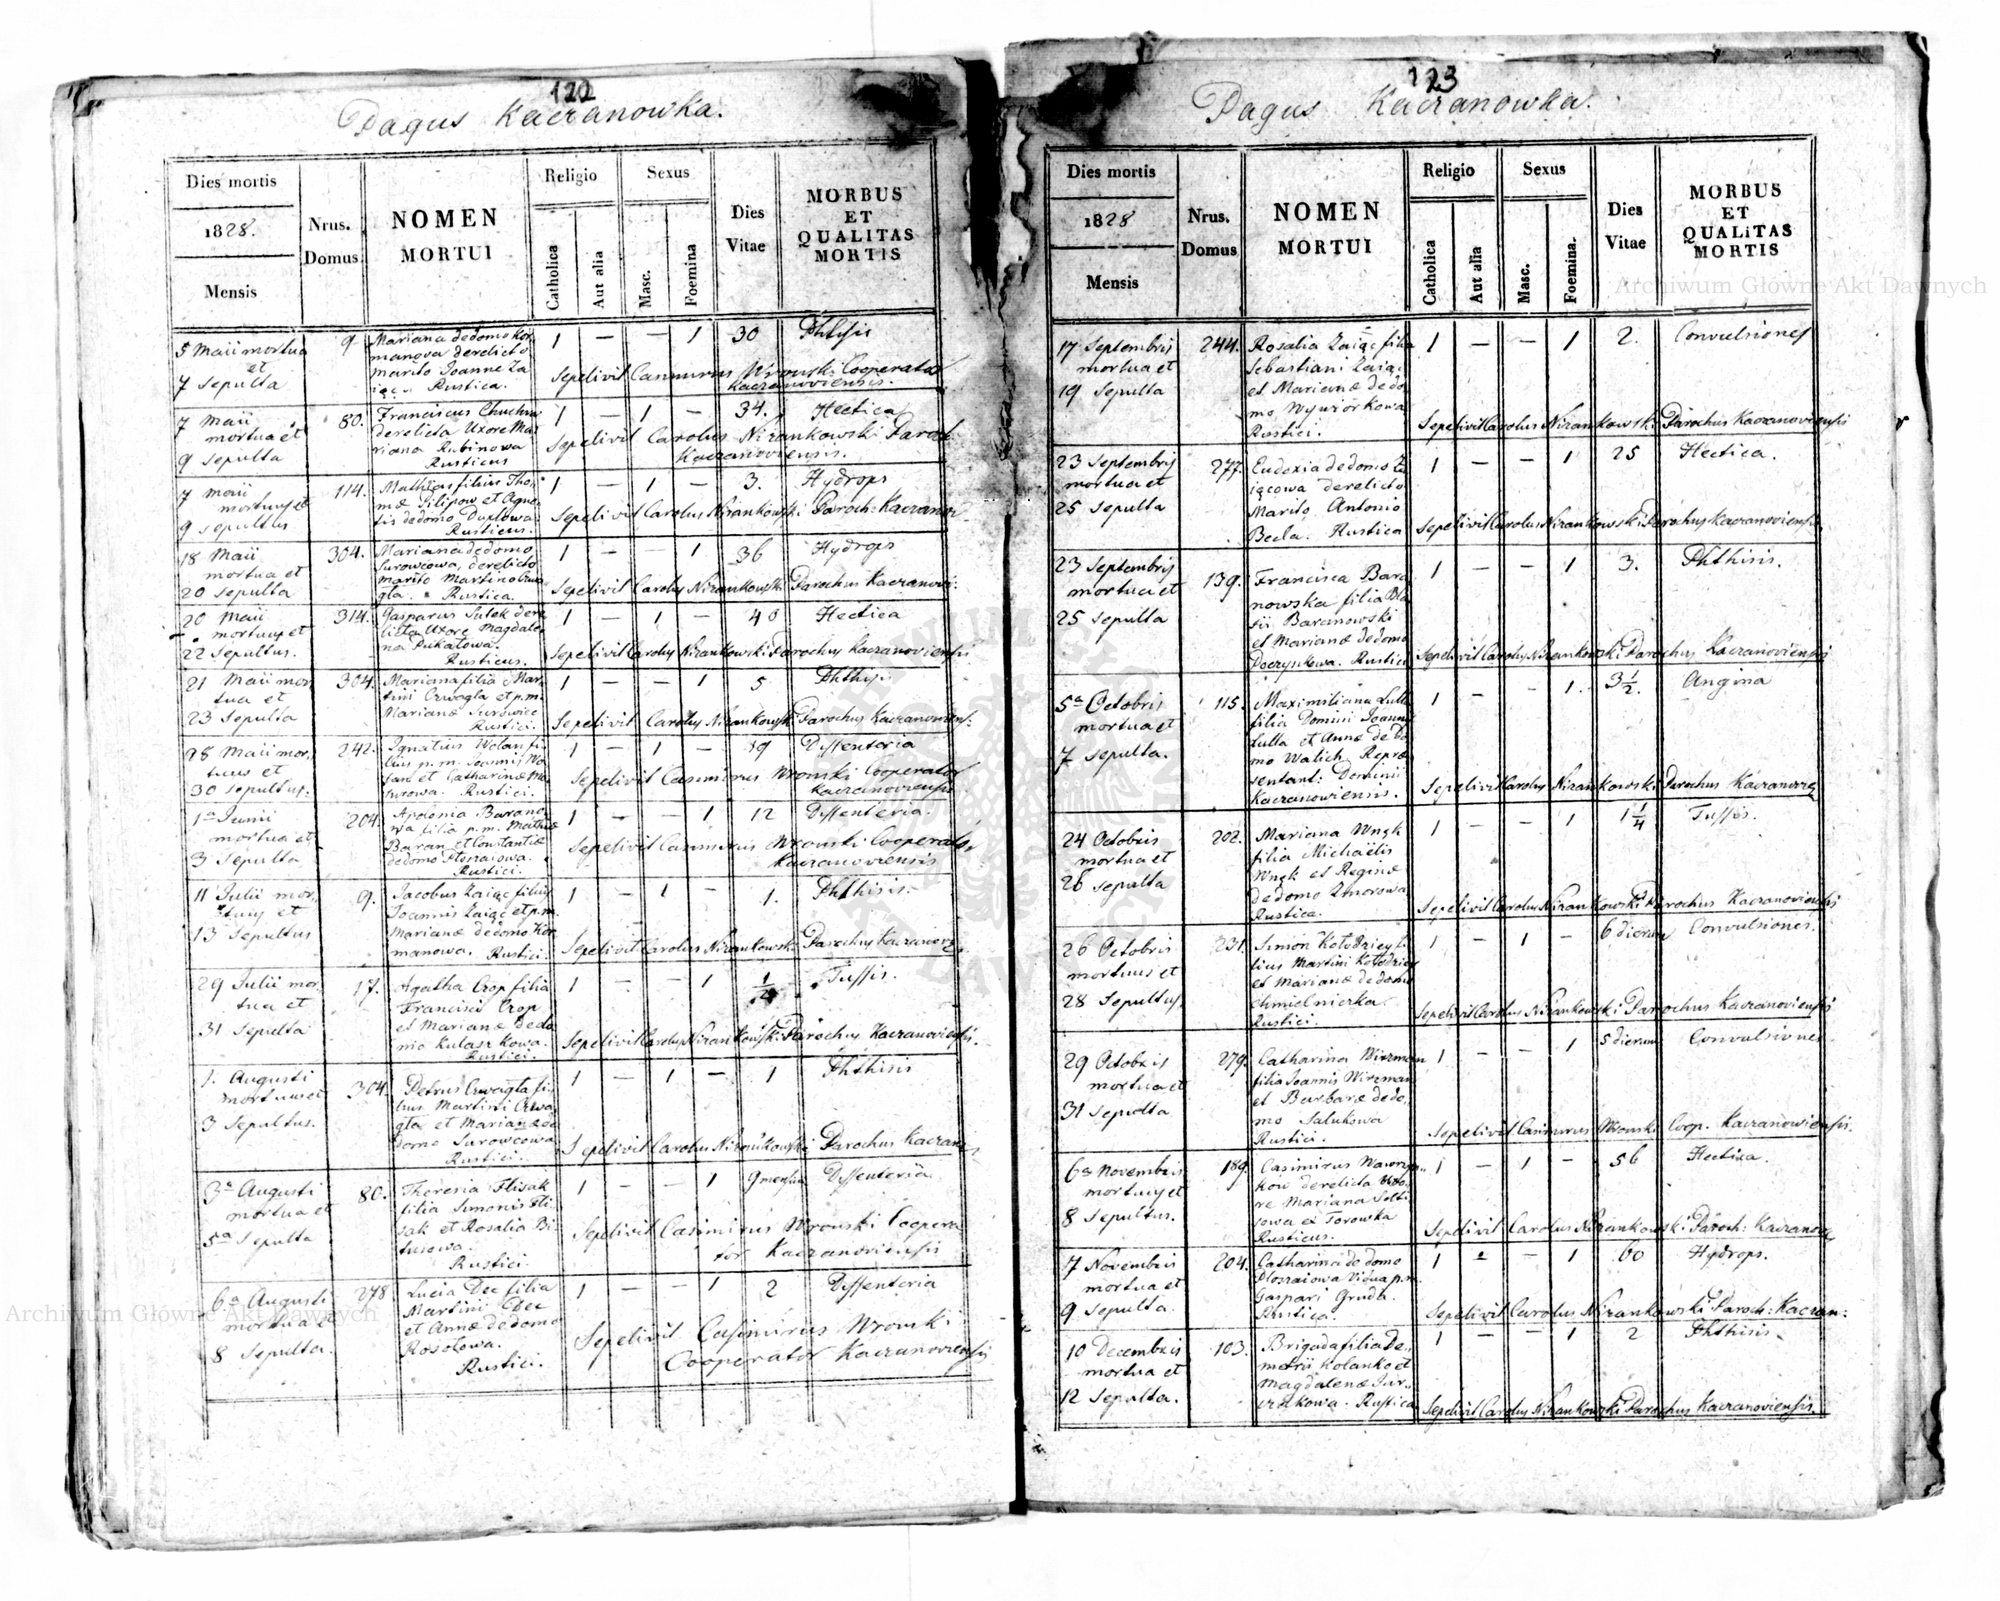 122
Pagus Kaczanowka.
Dies mortis
1828.
Mensis
Nrus.
Domus
NOMEN
MORTUI
Religio
Catholica
Aut alia
Sexus
Masc.
Foemina
Dies
Vitae
MORBUS
ET
QUALITAS
MORTIS
5 Maii mortua
et
7 Sepulta
9
Mariana de domo Kor
manova derelicto
marito Joanne Za
iąc. Rustica.
1 — — 1 30 Phthysis
Sepelivit Casimirus Wronski Cooperator
Kaczanoviensis.
7 Maii
mortua et
9 Sepulta
80.
Franciscus
derelicta Uxore Ma
riana Rubinowa
Rusticus
1 — 1 — 34. Hectica
Sepelivit Carolus Nizankowski Paroch:
Kaczanoviensis.
7 Maii
mortuus et
9 Sepultus
114.
Mathias filius Tho
mæ Filipow et Agna
tis de domo
Rusticus.
1 — 1 — 3. Hydrops
Sepelivit Carolus Nizankowski Paroch: Kaczanov
18 Maii
mortua et
20 Sepulta
304.
Mariana de domo
Surowcowa, derelicto
marito Martino Czwa
gla. Rustica.
1 — — 1 36 Hydrops
Sepelivit Carolus Nizankowski Parochus Kaczanovi:
20 Maii
mortuus et
22 Sepultus.
314.
Gasparus Sutek dere
licta Uxore Magdale
na Pukatowa.
Rusticus.
1 — 1 — 40 Hectica
Sepelivit Carolus Nizankowski Parochus Kaczanoviensis
21 Maii mor
tua et
23 Sepulta
304.
Mariana filia Mar
tini Czwagla et p.m.
Marianæ Surowice
Rustici.
1 — — 1 5 Phthysis
Sepelivit Carolus Nizankowski Parochus Kaczanoviens:
28 Maii mor
tuus et
30 Sepultus:
242.
Ignatius Wolan fi
lius p.m. Joannis Wo
lan et Catharinæ Ma
zurowa. Rustici.
1 — 1 — 19 Dyssenteria
Sepelivit Casimirus Wronski Cooperator
Kaczanoviensis
1a Junii
mortua et
3 Sepulta
204.
Apolonia Barano
wa filia p.m. Mathiæ
Baran et Constantiæ
de domo Ploszaiowa.
Rustici.
1 — — 1 12 Dyssenteria.
Sepelivit Casimirus Wronski Cooperator
Kaczanoviensis
11 Julii mor
tuus et
13 Sepultus
9.
Jacobus Zaiąc filius
Joannis Zaiąc et p.m.
Marianæ de domo Kor
manowa. Rustici.
1 — 1 — 1. Phthisis.
Sepelivit Carolus Nizankowski Parochus Kaczanovi
29 Julii mor
tua et
31 Sepulta
17.
Agatha Crop filia
Francisci Crop
et Marianæ de do
mo Kulaszkowa.
Rustici.
1 — — 1 1/4 Tussis.
Sepelivit Carolus Nizankowski Parochus Kaczanoviensis.
1. Augusti
mortuus et
3 Sepultus.
304.
Petrus Czwagla fi
lius Martini Czwa
gla et Marianæ de
domo Surowcowa
Rustici.
1 — 1 — 1 Phthisis
Sepelivit Carolus Nizankowski Parochus Kaczano
3a Augusti
mortua et
5a Sepulta
80.
Theresia Flisak
filia Simonis Fli
sak et Rosalia Bi
tusowa
Rustici.
1 — — 1 9 mensium Dyssenteria
Sepelivit Casimirus Wronski Coopera
tor Kaczanoviensis
6a Augusti
mortua et
8 Sepulta
278
Lucia Dec filia
Martini Dec
et Annæ de domo
Rosolowa.
Rustici.
1 — — 1 2 Dyssenteria
Sepelivit Casimirus Wronski
Cooperator Kaczanoviensis
123
Pagus Kaczanowka.
Dies mortis
1828
Mensis
Nrus.
Domus
NOMEN
MORTUI
Religio
Catholica
Aut alia
Sexus
Masc.
Foemina.
Dies
Vitae
MORBUS
ET
QUALITAS
MORTIS
17 Septembris
mortua et
19 Sepulta
244.
Rosalia Zaiąc filia
Sebastiani Zaiąc
et Marianæ de do
mo Wywiorkowa
Rustici.
1 — — 1 2. Convulsiones
Sepelivit Carolus Nizankowski Parochus Kaczanoviensis
23 Septembris
mortua et
25 Sepulta
277.
Eudoxia de domo Za
iącowa derelicto
Marito Antonio
Becla. Rustica
1 — — 1 25 Hectica.
Sepelivit Carolus Nizankowski Parochus Kaczanoviensis
23 Septembris
mortua et
25 Sepulta
139.
Francisca Bara
nowska filia Bla
sii Baranowski
et Marianæ de domo
Rustici
1 — — 1 3. Phthisis.
Sepelivit Carolus Nizankowski Parochus Kaczanoviensis
5a Octobris
mortua et
7 Sepulta.
115.
Maximiliana Lutta
filia Domini Joannis
Lutta et Annæ de do
mo Walich Repræ
sentant: Dominii
Kaczanowiensis.
1 — — 1. 3 1/2. Angina
Sepelivit Carolus Nizankowski Parochus Kaczanovie
24 Octobris
mortua et
26 Sepulta
202.
Mariana Wnęk
filia Michaëlis
Wnęk et Reginæ
de domo Zmorowa
Rustica.
1 — — 1 1 1/4 Tussis.
Sepelivit Carolus Nizankowski Parochus Kaczanoviensis
26 Octobris
mortuus et
28 Sepultus.
231.
Simon Kołodziey fi
lius Martini Kołodziey
et Marianæ de domo
Chmielnicka
Rustici.
1 — 1 — 6 dierum Convulsiones.
Sepelivit Carolus Nizankowski Parochus Kaczanoviensis
29 Octobris
mortua et
31 Sepulta
279.
Catharina Wirzman
filia Joannis Wirzman
et Barbaræ de do
mo Salukowa
Rustici.
1 — — 1 5 dierum Convulsiones
Sepelivit Casimirus Wronski Coop. Kaczanowiensis.
6a Novembris
mortuus et
8 Sepultus.
189.
Casimirus Wawryn
kow derelicta Uxo
re Mariana Solti
sowa a Torowka
Rusticus.
1 — 1 — 56 Hectica.
Sepelivit Carolus Nizankowski Paroch: Kaczanov
7 Novembris
mortua et
9 Sepulta.
204.
Catharina de domo
Ploszaiowa Vidua p.m.
Gaspari Gruda.
Rustica.
1 — — 1 60 Hydrops.
Sepelivit Carolus Nizankowski Paroch: Kaczan:
10 Decembris
mortua et
12 Sepulta.
103.
Brigada filia De
metrii Kolanko et
Magdalenæ Jur
czakowa. Rustica
1 — — 1 2 Phthisis.
Sepelivit Carolus Nizankowski Parochus Kaczanoviensis.
Archiwum Główne Akt Dawnych
Archiwum Główne Akt Dawnych